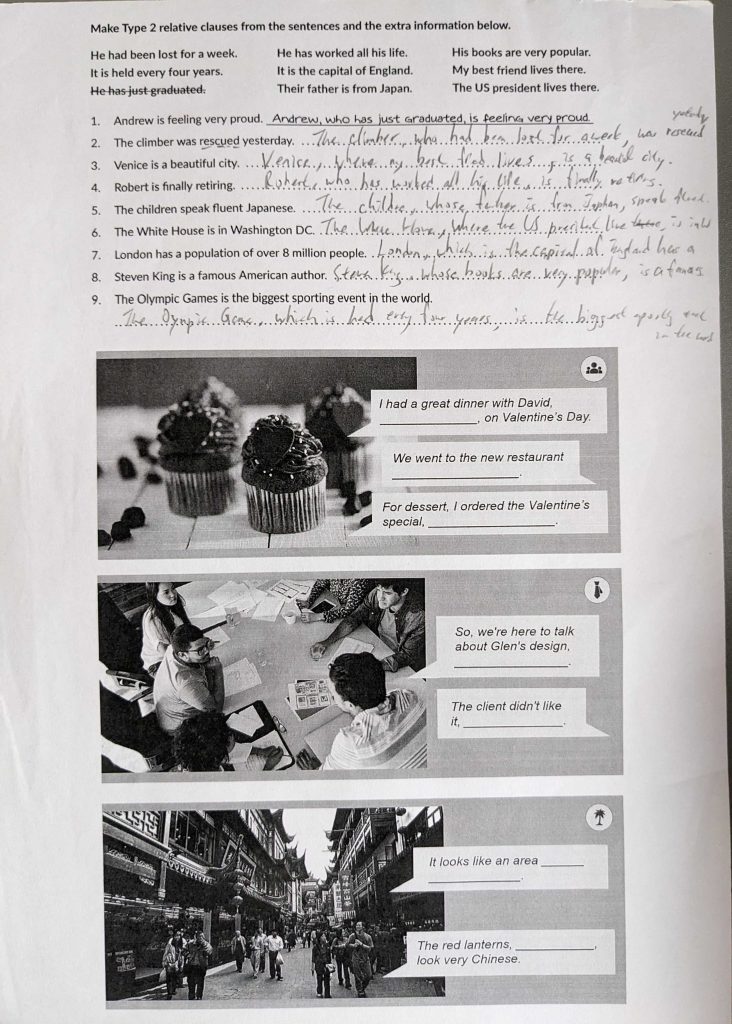 Make Type 2 relative clauses from the sentences and the extra information below.
He had been lost for a week. He has worked all his life. His books are very popular.
It is held every four years. It is the capital of England. My best friend lives there.
He has just graduated. Their father is from Japan. The US president lives there.
1. Andrew is feeling very proud. Andrew, who has just graduated, is feeling very proud.
yesterday
2. The climber was rescued yesterday. The climber, who had been lost for a week, was rescued
3. Venice is a beautiful city. Venice, where my best friend lives, is a beautiful city.
4. Robert is finally retiring. Robert, who has worked all his life, is finally retiring.
5. The children speak fluent Japanese. The children, whose father is from Japhan, speak fluent
6. The White House is in Washington DC. The White House, where the US president live there, is in
7. London has a population of over 8 million people. London, which is the capital of England has a
8. Steven King is a famous American author. Steven King, whose books are very popular, is a famous
9. The Olympic Games is the biggest sporting event in the world.
The Olympic Games, which is held every four years, is the biggest sporting event
in the world
I had a great dinner with David,
, on Valentine's Day.
We went to the new restaurant
.
For dessert, I ordered the Valentine's
special, .
So, we're here to talk
about Glen's design,
.
The client didn't like
it, .
It looks like an area
.
The red lanterns, ,
look very Chinese.